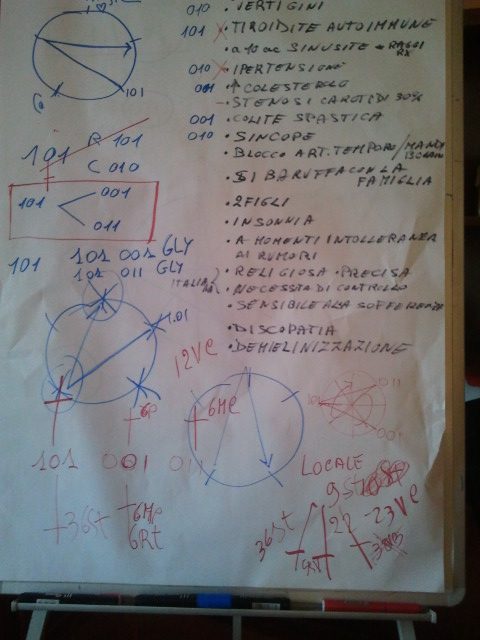 010 • VERTIGINI
101 • TIROIDITE AUTOIMMUNE
• a 10 aa SINUSITE → RAGGI RX
010 • IPERTENSIONE
001 • ↑ COLESTEROLO
- STENOSI CAROTIDI 30%
001 • COLITE SPASTICA
010 • SINCOPE
• BLOCCO ART. TEMPORO/
• SI BARUFFA CON LA FAMIGLIA
• 2 FIGLI
• INSONNIA
• A MOMENTI INTOLLERANZA AI RUMORI
• RELIGIOSA • PRECISA
• NECESSITA DI CONTROLLO
• SENSIBILE ALLA SOFFERENZA
• DISCOPATIA
• DEMIELINIZZAZIONE
101
101 R 101
C 010
101 001
011
101 101 001 GLY
101 011 GLY
101
12VE
6P
6ME
101 011
001
101 001 01
LOCALE
9ST
36ST
6ME
6RT
36ST
9ST
22
-23VE